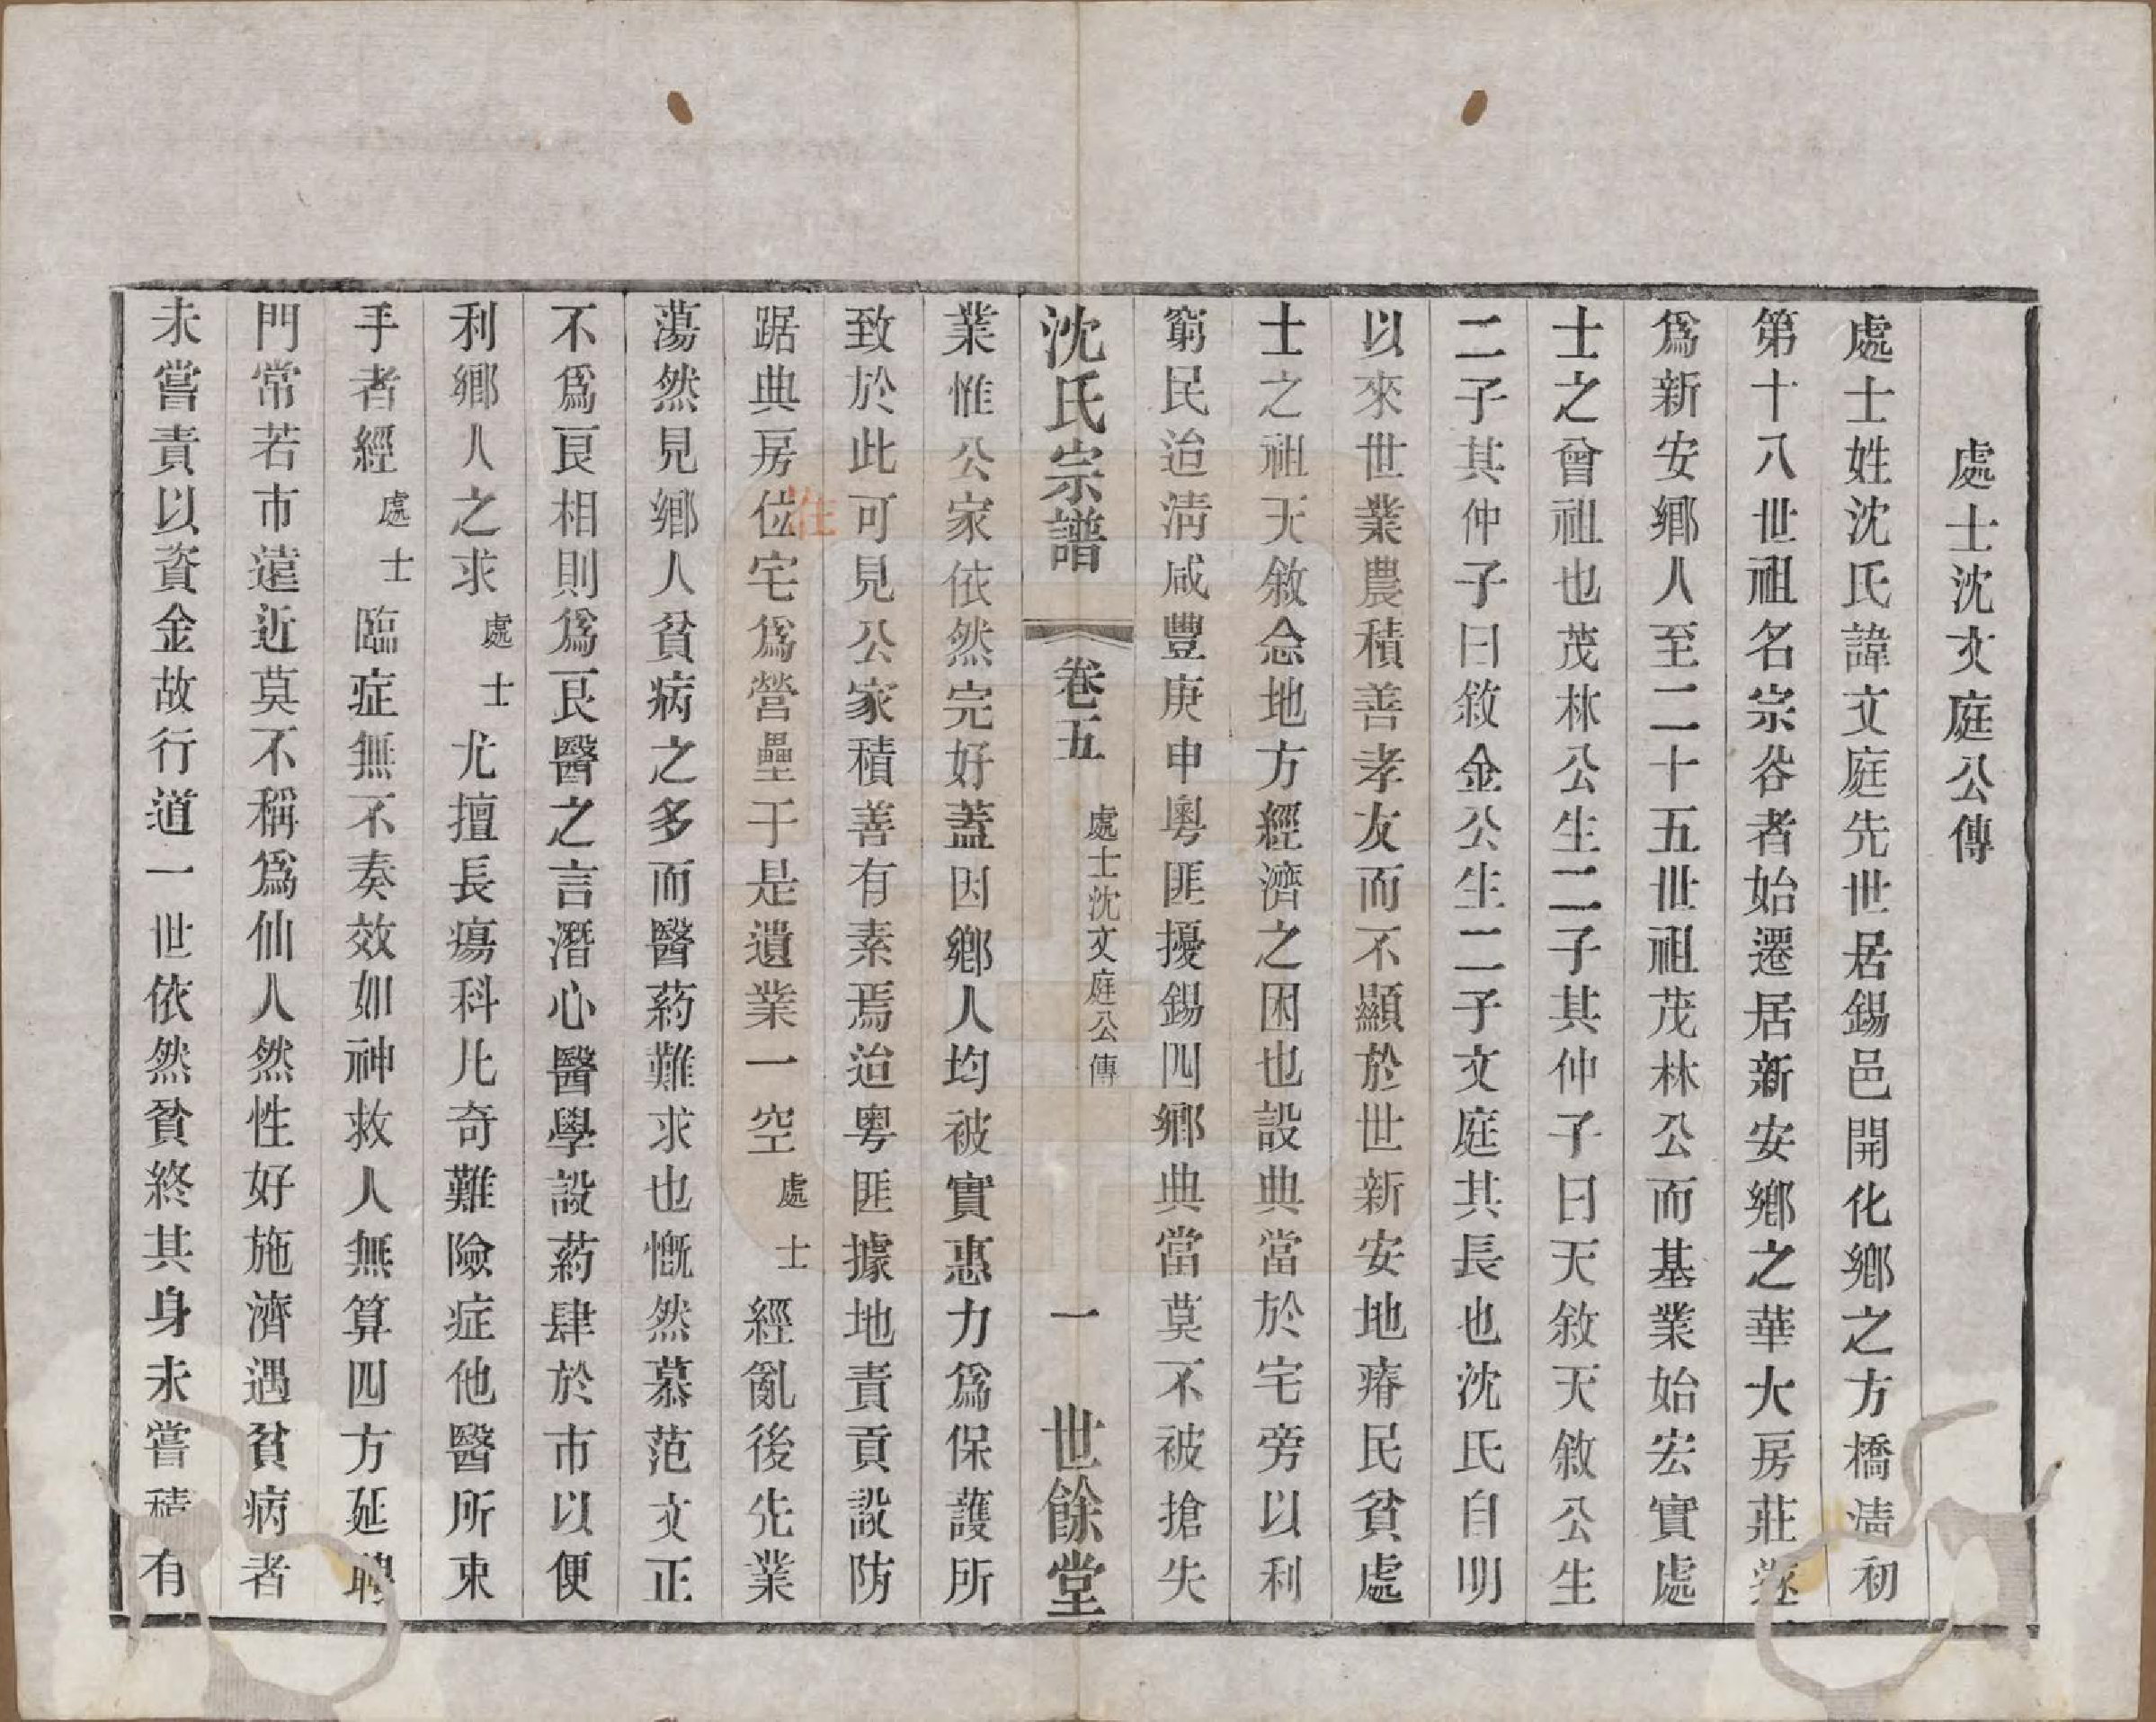 處士沈文庭公傳
處士姓沈氏諱文庭先世居錫邑開化鄉之方橋清初
第十八世祖名宗谷者始遷居新安鄉之華大房莊遂
爲新安鄉人至二十五世祖茂林公而基業始宏實處
士之曾祖也茂林公生二子其仲子曰天敘天敘公生
二子其仲子曰敘金公生二子文庭其長也沈氏自明
以來世業農積善孝友而不顯於世新安地瘠民貧處
士之祖天敘念地方經濟之困也設典當於宅旁以利
窮民迨清咸豐庚申粵匪擾錫四鄉典當莫不被搶失
沈氏宗譜 卷五 處士沈文庭公傳 一 世餘堂
業惟公家依然完好蓋因鄉人均被實惠力爲保護所
致於此可見公家積善有素焉迨粵匪據地責貢設防
踞典房位宅爲營壘于是遺業一空處士經亂後先業
住
蕩然見鄉人貧病之多而醫葯難求也慨然慕范文正
不爲良相則爲良醫之言潛心醫學設葯肆於市以便
利鄉人之求處士尤擅長瘍科凡奇難險症他醫所束
手者經處士臨症無不奏效如神救人無算四方延聘
門常若市遠近莫不稱爲仙人然性好施濟遇貧病者
未嘗責以資金故行道一世依然貧終其身未嘗積有